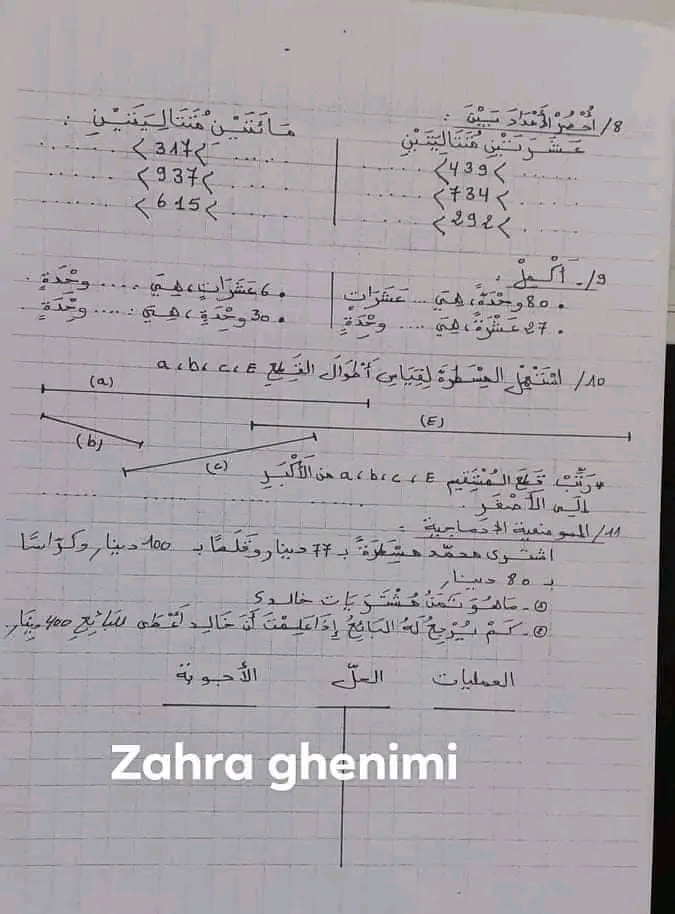 8/ أُحْصُرُ الأَعْدَادَ بَيْنَ :
عَشَرَتَيْنِ مُتَتَالِيَتَيْنِ
...... <439> ......
...... <734> ......
...... <292> ......
مَائَتَيْنِ مُتَتَالِيَتَيْنِ :
...... <317> ......
...... <937> ......
...... <615> ......
9/- أُكْمِلُ :
• 80 وِحْدَةً، هِيَ ... عَشَرَاتٍ
• 27 عَشْرَةً، هِيَ .... وِحْدَةٍ
• 6 عَشَرَاتٍ، هِيَ .... وِحْدَةٍ .
• 30 وِحْدَةٍ، هِيَ : .... وِحْدَةٍ
10/ اسْتَعْمِلْ المِسْطَرَةَ لِقِيَاسِ أَطْوَالَ القِطَعِ a، b، c، E
(a)
(E)
(b)
(c)
* رَتِّبْ قِطَعَ المُسْتَقِيمِ a، b، c، E مِنَ الأَكْبَرِ
إِلَى الأَصْغَرِ .
11/ الوضعية الإدماجية :
اشترى محمّد مِسْطَرَةً بـ 77 دينار وقَلَمًا بـ 100 دينار وكرّاسًا
بـ 80 دينار
①- مَاهُوَ ثَمَنُ مُشْتَرَيَات خالد؟
②- كَمْ يُرْجِعُ لَهُ البَائِعُ إِذَا عَلِمْتَ أَنَّ خَالِد أَعْطَى لِلبَائِعِ 400 دِينَار.
العمليات الحلّ الأجوبة
Zahra ghenimi